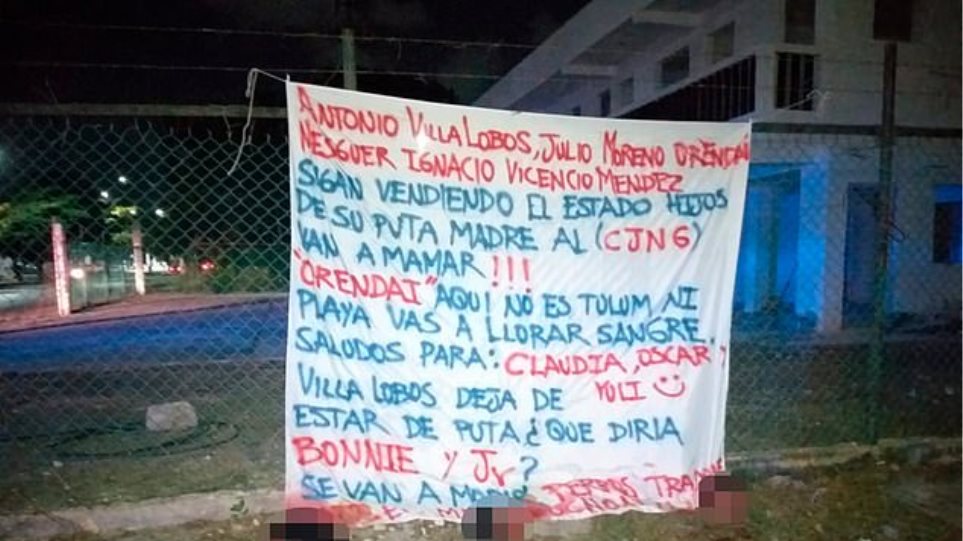 ANTONIO VILLALOBOS, JULIO MORENO ORENDAI
NESGUER IGNACIO VICENCIO MENDEZ
SIGAN VENDIENDO EL ESTADO HIJOS
DE SU PUTA MADRE AL (CJNG)
VAN A MAMAR !!!
"ORENDAI" AQUI NO ES TULUM, NI
PLAYA VAS A LLORAR SANGRE.
SALUDOS PARA: CLAUDIA, OSCAR,
VILLA LOBOS DEJA DE YULI
ESTAR DE PUTA ¿QUE DIRIA
BONNIE Y Jr?
SE VAN A